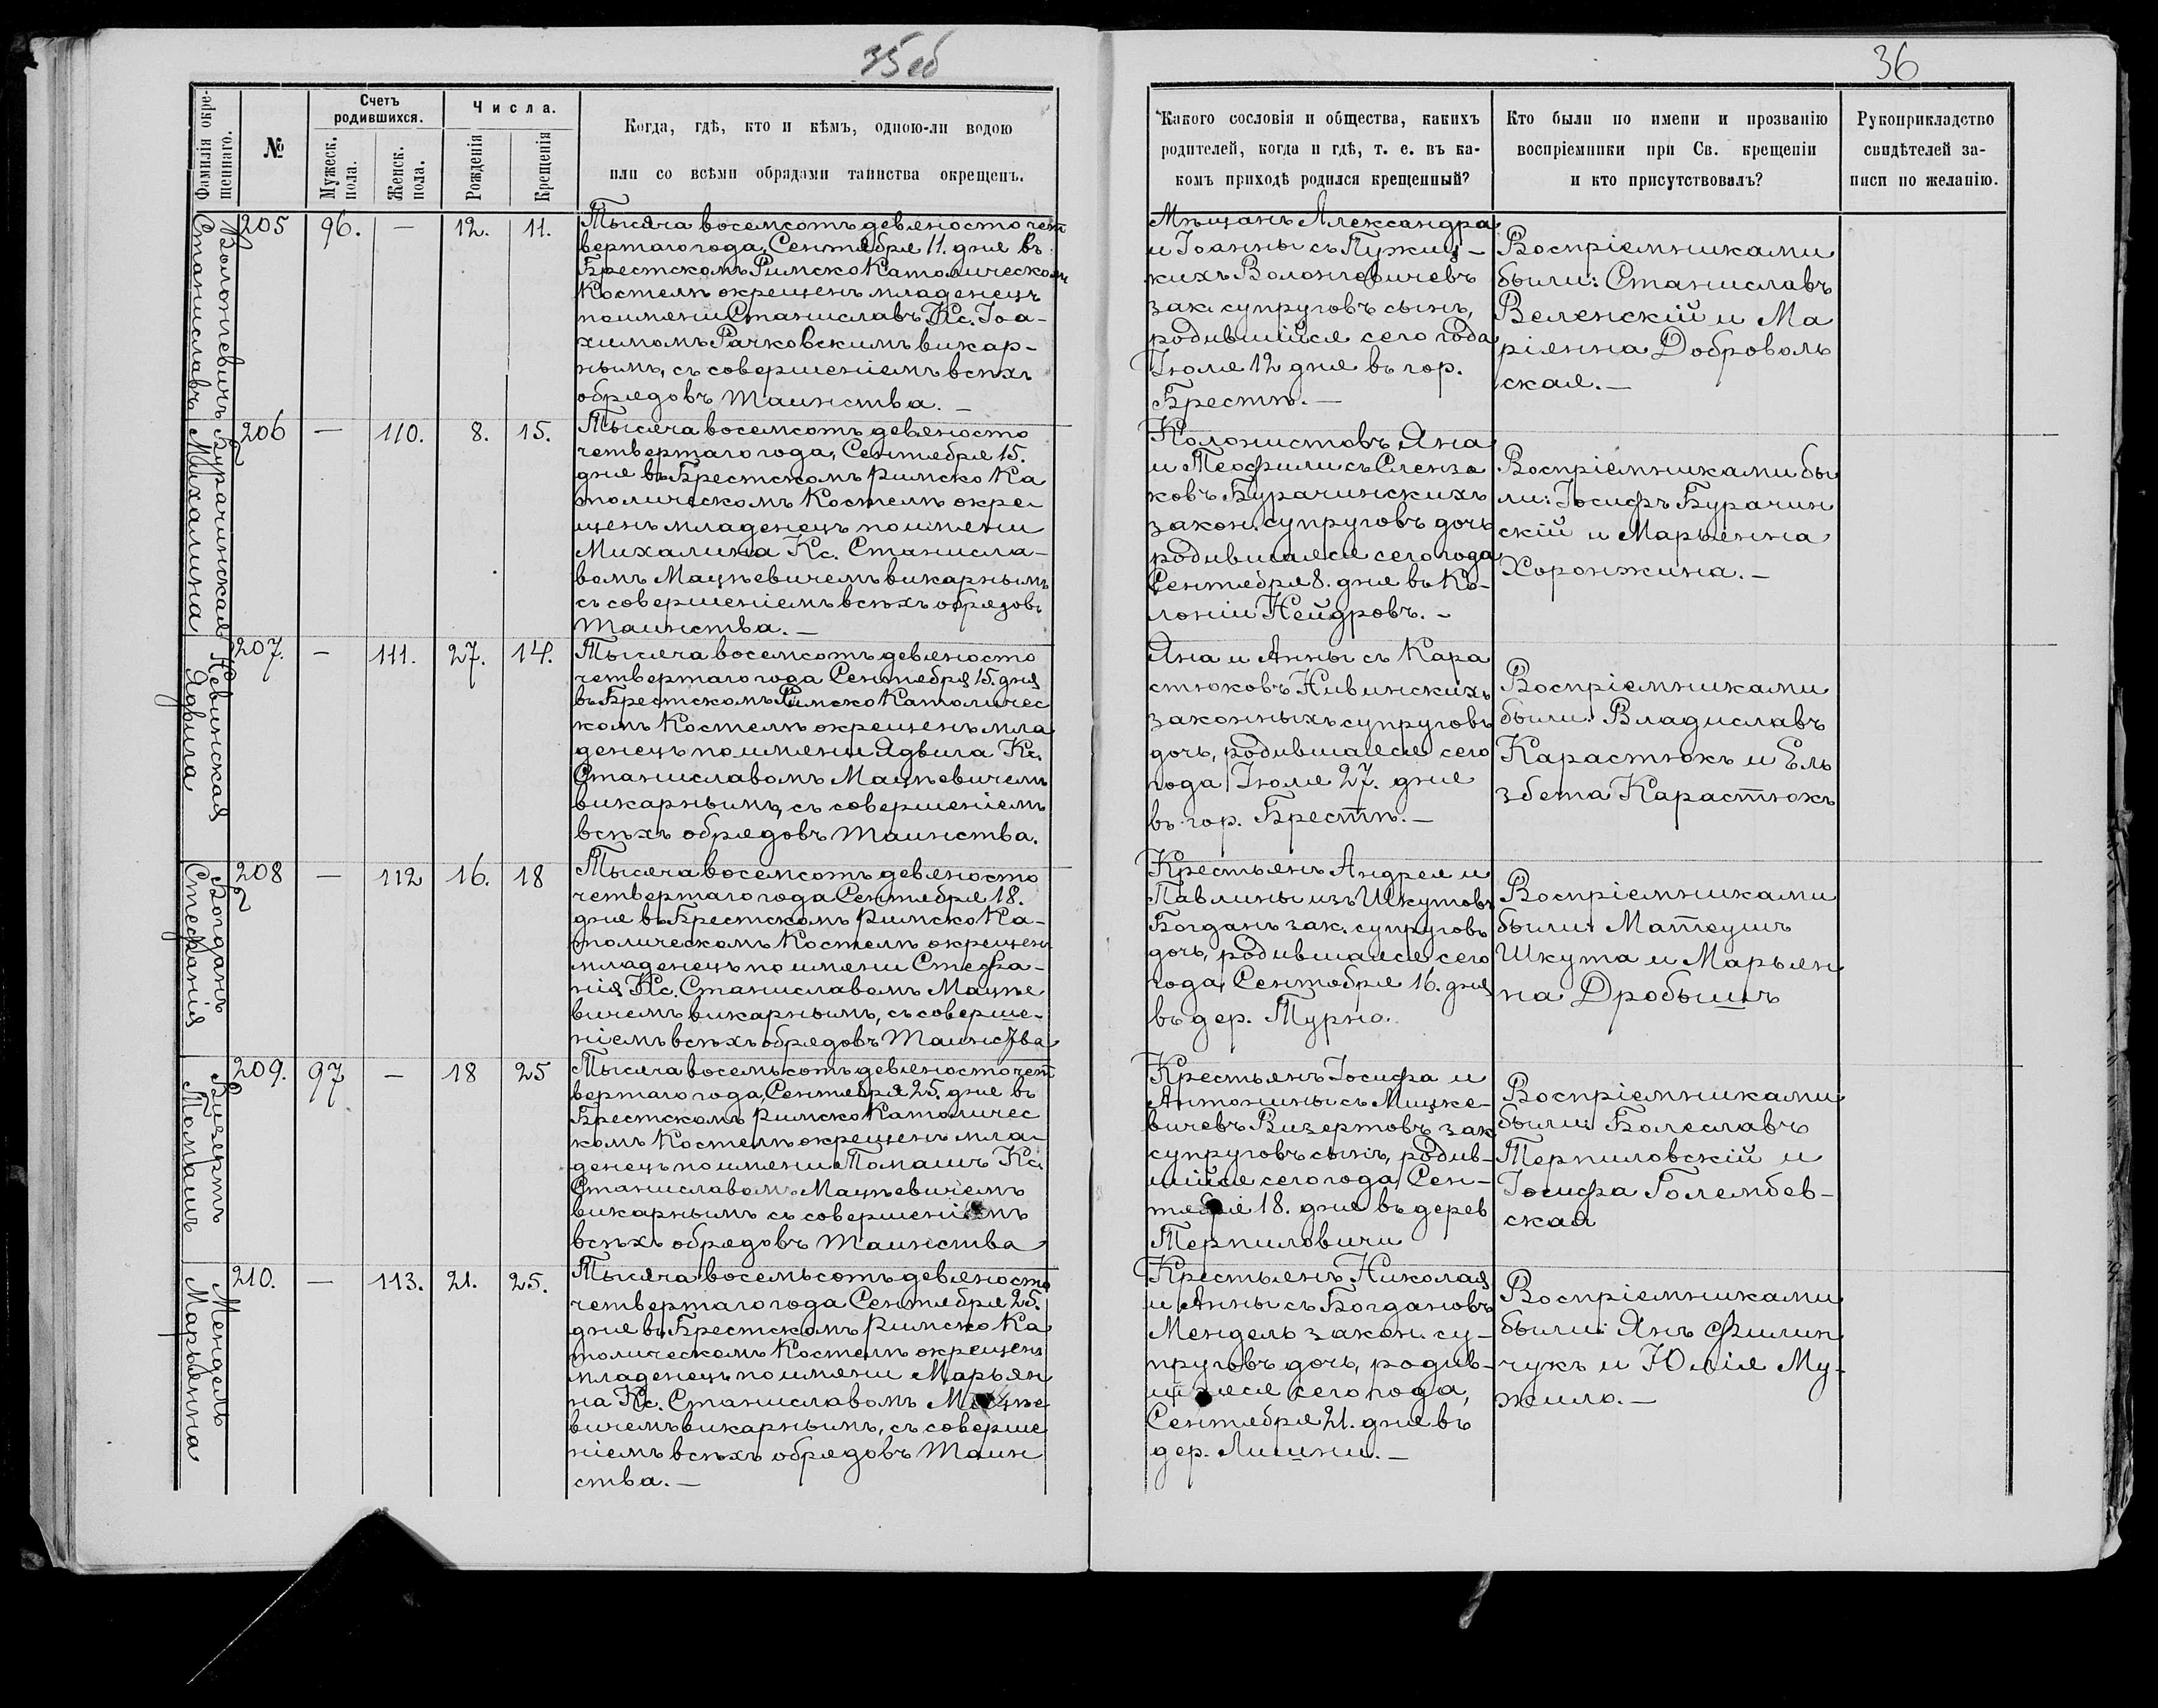 35 об
36
Фамилія окре-
щеннаго.
№
Счетъ
родившихся.
Мужеск.
пола.
Женск.
пола.
Числа.
Рожденія
Крещенія
Когда, гдѣ, кто и кѣмъ, одною-ли водою
или со всѣми обрядами таинства окрещенъ.
Какого сословія и общества, какихъ
родителей, когда и гдѣ, т. е. въ ка-
комъ приходѣ родился крещенный?
Кто были по имени и прозванію
воспріемники при Св. крещеніи
и кто присутствовалъ?
Рукоприкладство
свидѣтелей за-
писи по желанію.
Волонсевичъ
Станиславъ
205
96.
—
12.
11.
Тысяча восемсотъ девяносто чет
вертаго года, Сентября 11. дня въ
Брестскомъ Римско Католическомъ
Костелѣ окрещенъ младенецъ
по имени Станиславъ, Кс. Іоа-
химомъ Рачковскимъ викар-
нымъ, съ совершеніемъ всѣхъ
обрядовъ таинства. —
Мѣщанъ Александра
и Іоанны съ Пужиц-
кихъ Волонсевичевъ
зак. супруговъ сынъ,
родившійся сего года
Іюля 12 дня въ гор.
Брестѣ. —
Воспріемниками
были: Станиславъ
Веленскій и Ма
ріянна Доброволь
ская. —
Бурачинская
Михалина
206
—
110.
8.
15.
Тысяча восемсотъ девяносто
четвертаго года, Сентября 15.
дня въ Брестскомъ Римско Ка
толическомъ Костелѣ окре
щенъ младенецъ по имени
Михалина Кс. Станисла-
вомъ Мацѣевичемъ викарнымъ
съ совершеніемъ всѣхъ обрядовъ
таинства. —
Колонистовъ Яна
и Теофили съ Сленза
ковъ Бурачинскихъ
закон. супруговъ дочь
родившаяся сего года
Сентября 8. дня въ Ко-
лоніи Нейдровъ. -
Воспріемниками бы
ли: Іосифъ Бурачин
скій и Марьянна
Хоронжина. —
Невинская
Ядвига
207.
—
111.
27.
14.
Тысяча восемсотъ девяносто
четвертаго года Сентября 15. дня
въ Брестскомъ Римско Католичес
комъ Костелѣ окрещенъ мла
денецъ по имени Ядвига Кс.
Станиславомъ Мацѣевичемъ
викарнымъ, съ совершеніемъ
всѣхъ обрядовъ таинства.
Яна и Анны съ Кара
стюковъ Нивинскихъ
законныхъ супруговъ
дочь, родившаяся сего
года Іюля 27. дня
въ гор. Брестѣ. —
Воспріемниками
были: Владиславъ
Карастюкъ и Ель
збета Карастюкъ
Богданъ
Стефанія
208
—
112
16.
18
Тысяча восемсотъ девяносто
четвертаго года Сентября 18.
дня въ Брестскомъ Римско Ка-
толическомъ Костелѣ окрещенъ
младенецъ по имени Стефа-
нія Кс. Станиславомъ Мацѣе
вичемъ викарнымъ, съ соверше-
ніемъ всѣхъ обрядовъ Таинства
Крестьянъ Андрея и
Павлины изъ Шкутовъ
Богданъ зак. супруговъ
дочь, родившаяся сего
года, Сентября 16. дня
въ дер. Турно.
Воспріемниками
были: Матеушъ
Шкута и Марьян
на Дробышъ
Визертъ
Томашъ
209.
97
—
18
25
Тысяча восемьсотъ девяносто чет
вертаго года, Сентября 25. дня въ
Брестскомъ Римско Католичес
комъ Костелѣ окрещенъ мла-
денецъ по имени Томашъ Кс.
Станиславомъ Мацѣевичемъ
викарнымъ съ совершеніемъ
всѣхъ обрядовъ таинства
Крестьянъ Іосифа и
Антонины съ Мицке-
вичевъ Визертовъ зак.
супруговъ сынъ, родив-
шійся сего года Сен-
тября 18. дня въ дерев
Терпиловичи
Воспріемниками
были: Болеславъ
Терпиловскій и
Іосифа Голембев-
ская
Мендель
Марьянна
210.
—
113.
21.
25.
Тысяча восемьсотъ девяносто
четвертаго года Сентября 25.
дня въ Брестскомъ Римско Ка
толическомъ Костелѣ окрещенъ
младенецъ по имени Марьян
на Кс. Станиславомъ Мацѣе
вичемъ викарнымъ, съ соверше
ніемъ всѣхъ обрядовъ таин
ства. —
Крестьянъ Николая
и Анны съ Богдановъ
Мендель закон. су-
пруговъ дочь, родив-
шаяся сего года,
Сентября 21. дня въ
дер. Лишни. —
Воспріемниками
были: Янъ Филип
чукъ и Юлія Му-
жило. —